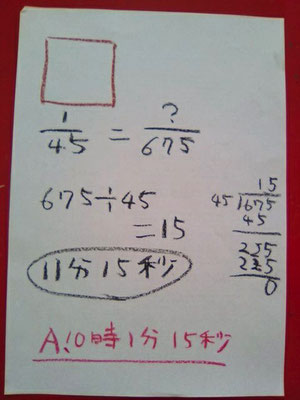 1/45 = ?/675
675÷45
=15
11分15秒
15
45)675
45
225
225
0
A!0時1分15秒